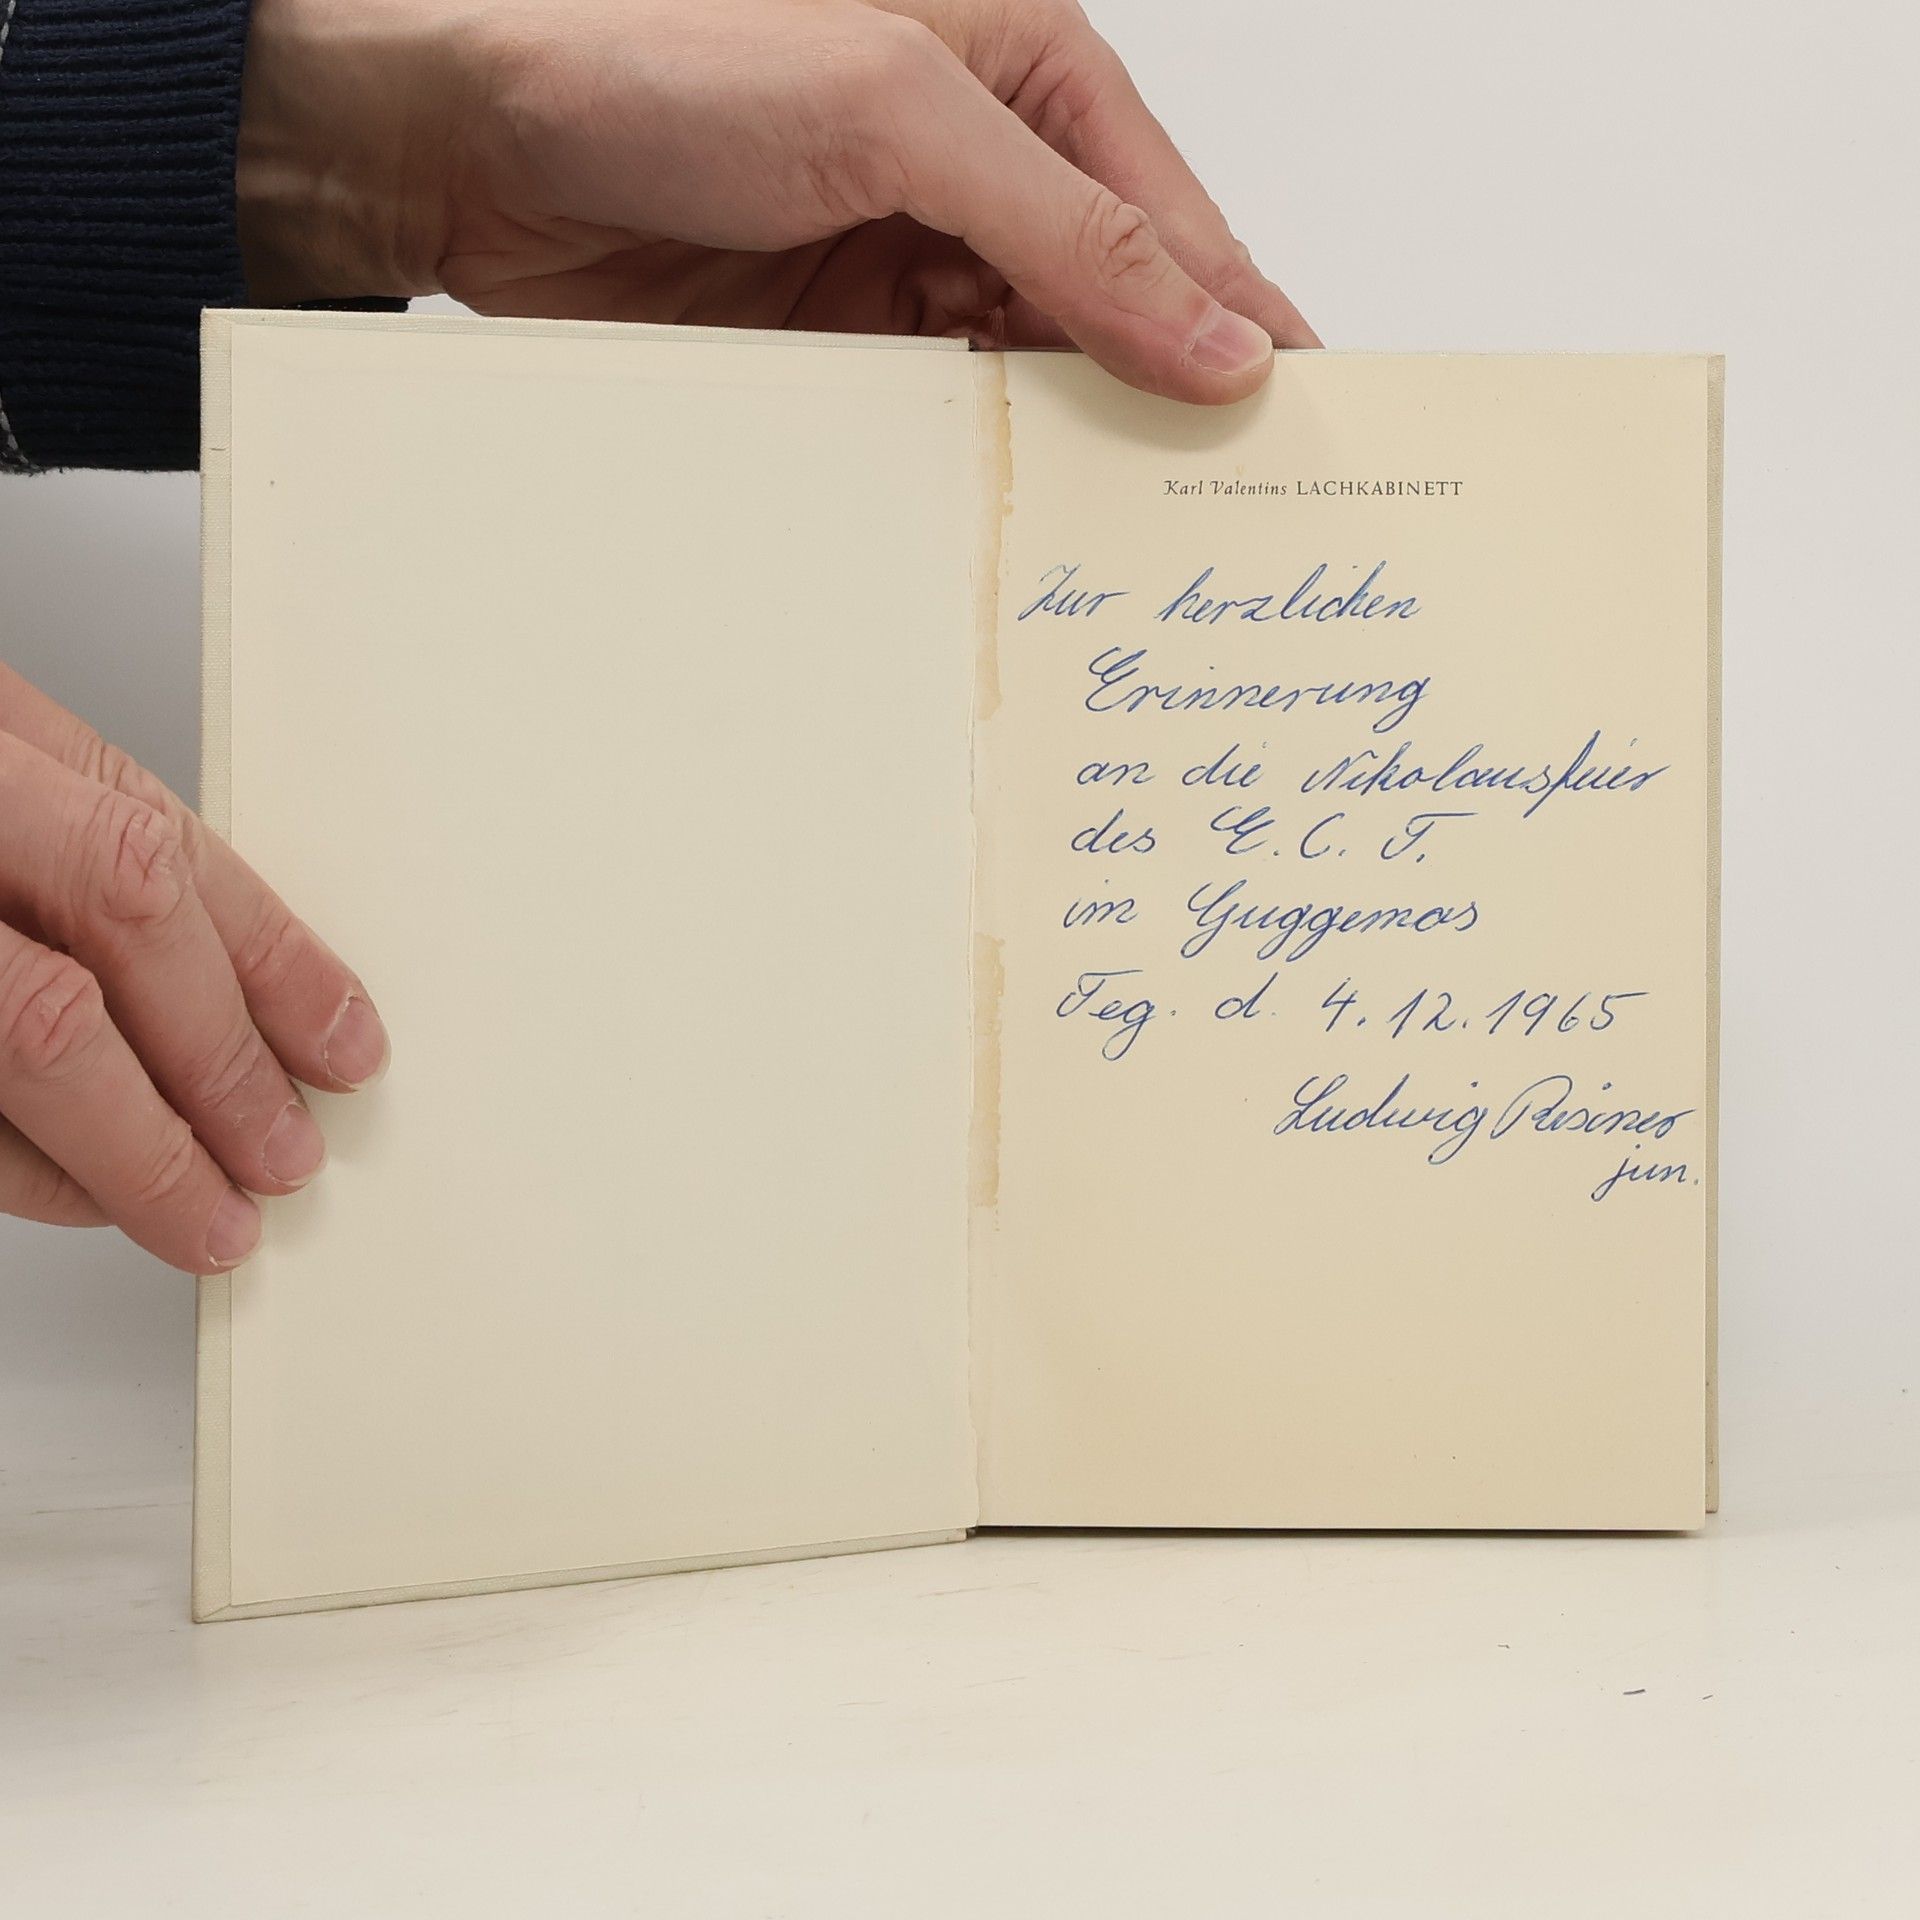 Karl Valentins LACHKABINETT
Zur herzlichen
Erinnerung
an die Nikolausfeier
des E. C. T.
im Guggemos
Teg. d. 4.12.1965
Ludwig
jun.